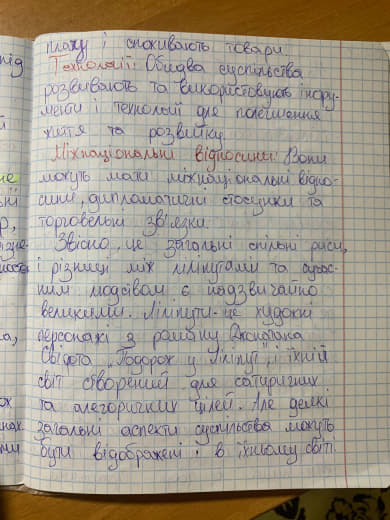 плату і споживають товари
Технології: Обидва суспільства
розвивають та використовують інстру-
менти і технології для полегшення
життя та розвитку.
Міжнаціональні відносини: Вони
можуть мати міжнаціональні відно-
сини, дипломатичні стосунки та
торговельні зв'язки.
Звісно, це загальні спільні риси,
і різниці між ліліпутами та сучас-
ним людством є надзвичайно
великими. Ліліпути - це художні
персонажі з роману Джонатана
Свіфта "Подорож у Ліліпут", і їхній
світ створений для сатиричних
та алегоричних цілей. Але деякі
загальні аспекти суспільства можуть
бути відображені і в їхньому світі.